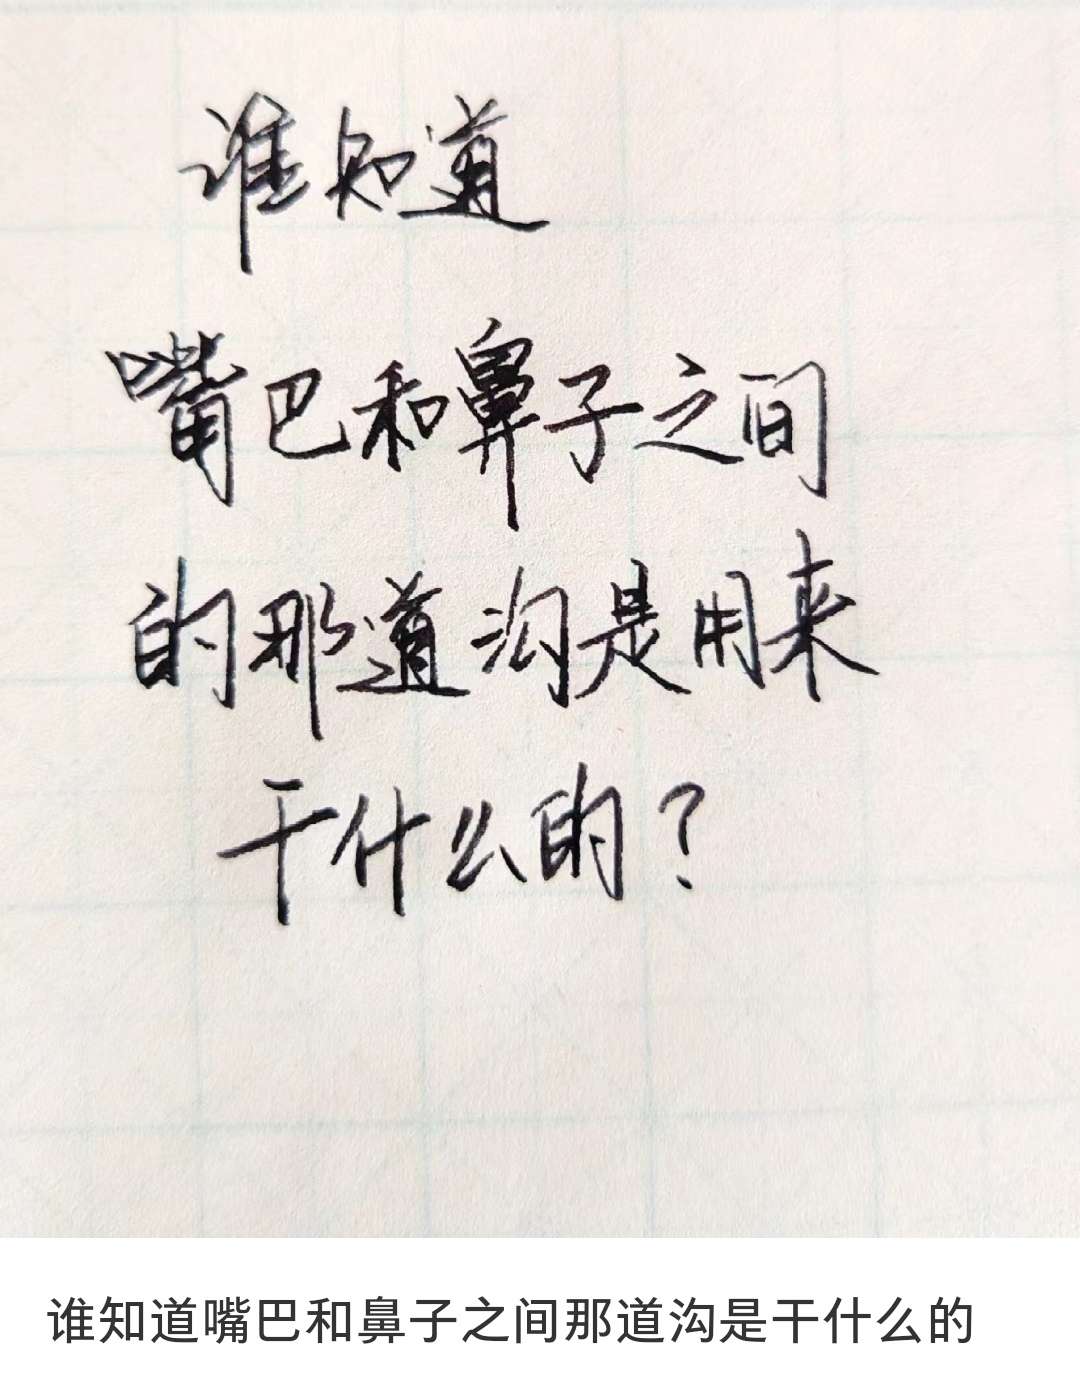 谁知道
嘴巴和鼻子之间
的那道沟是用来
干什么的?
谁知道嘴巴和鼻子之间那道沟是干什么的